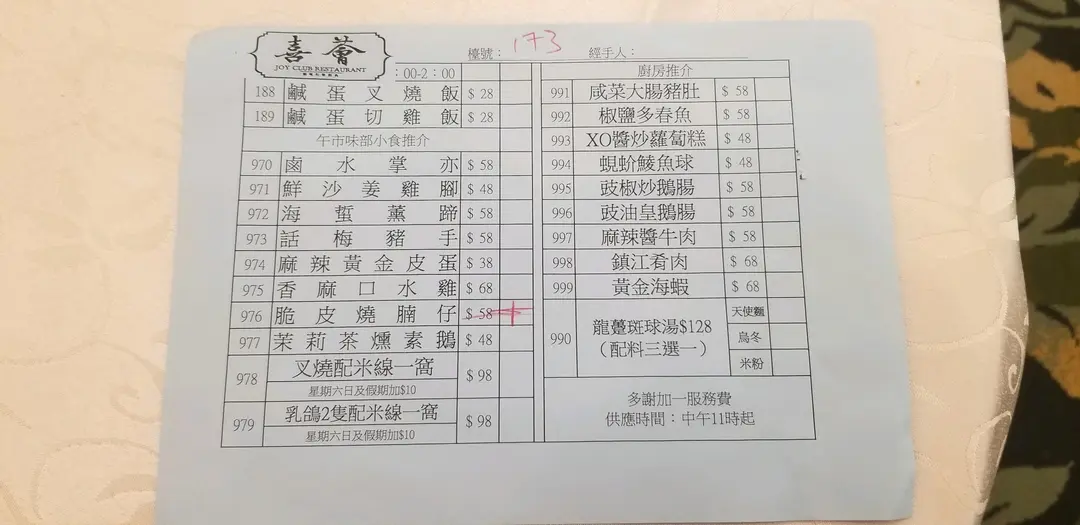 喜薈
JOY CLUB RESTAURANT
檯號： 173 經手人：
：00-2：00
188 鹹蛋叉燒飯 $ 28
189 鹹蛋切雞飯 $ 28
午市味部小食推介
970 鹵水掌亦 $ 58
971 鮮沙姜雞腳 $ 48
972 海蜇薰蹄 $ 58
973 話梅豬手 $ 58
974 麻辣黃金皮蛋 $ 38
975 香麻口水雞 $ 68
976 脆皮燒腩仔 $ 58
977 茉莉茶燻素鵝 $ 48
978 叉燒配米線一窩 $ 98
星期六日及假期加$10
979 乳鴿2隻配米線一窩 $ 98
星期六日及假期加$10
廚房推介
991 咸菜大腸豬肚 $ 58
992 椒鹽多春魚 $ 58
993 XO醬炒蘿蔔糕 $ 48
994 蜆蚧鯪魚球 $ 48
995 豉椒炒鵝腸 $ 58
996 豉油皇鵝腸 $ 58
997 麻辣醬牛肉 $ 58
998 鎮江肴肉 $ 68
999 黃金海蝦 $ 68
990 龍躉斑球湯$128
（配料三選一）
天使麵
烏冬
米粉
多謝加一服務費
供應時間：中午11時起